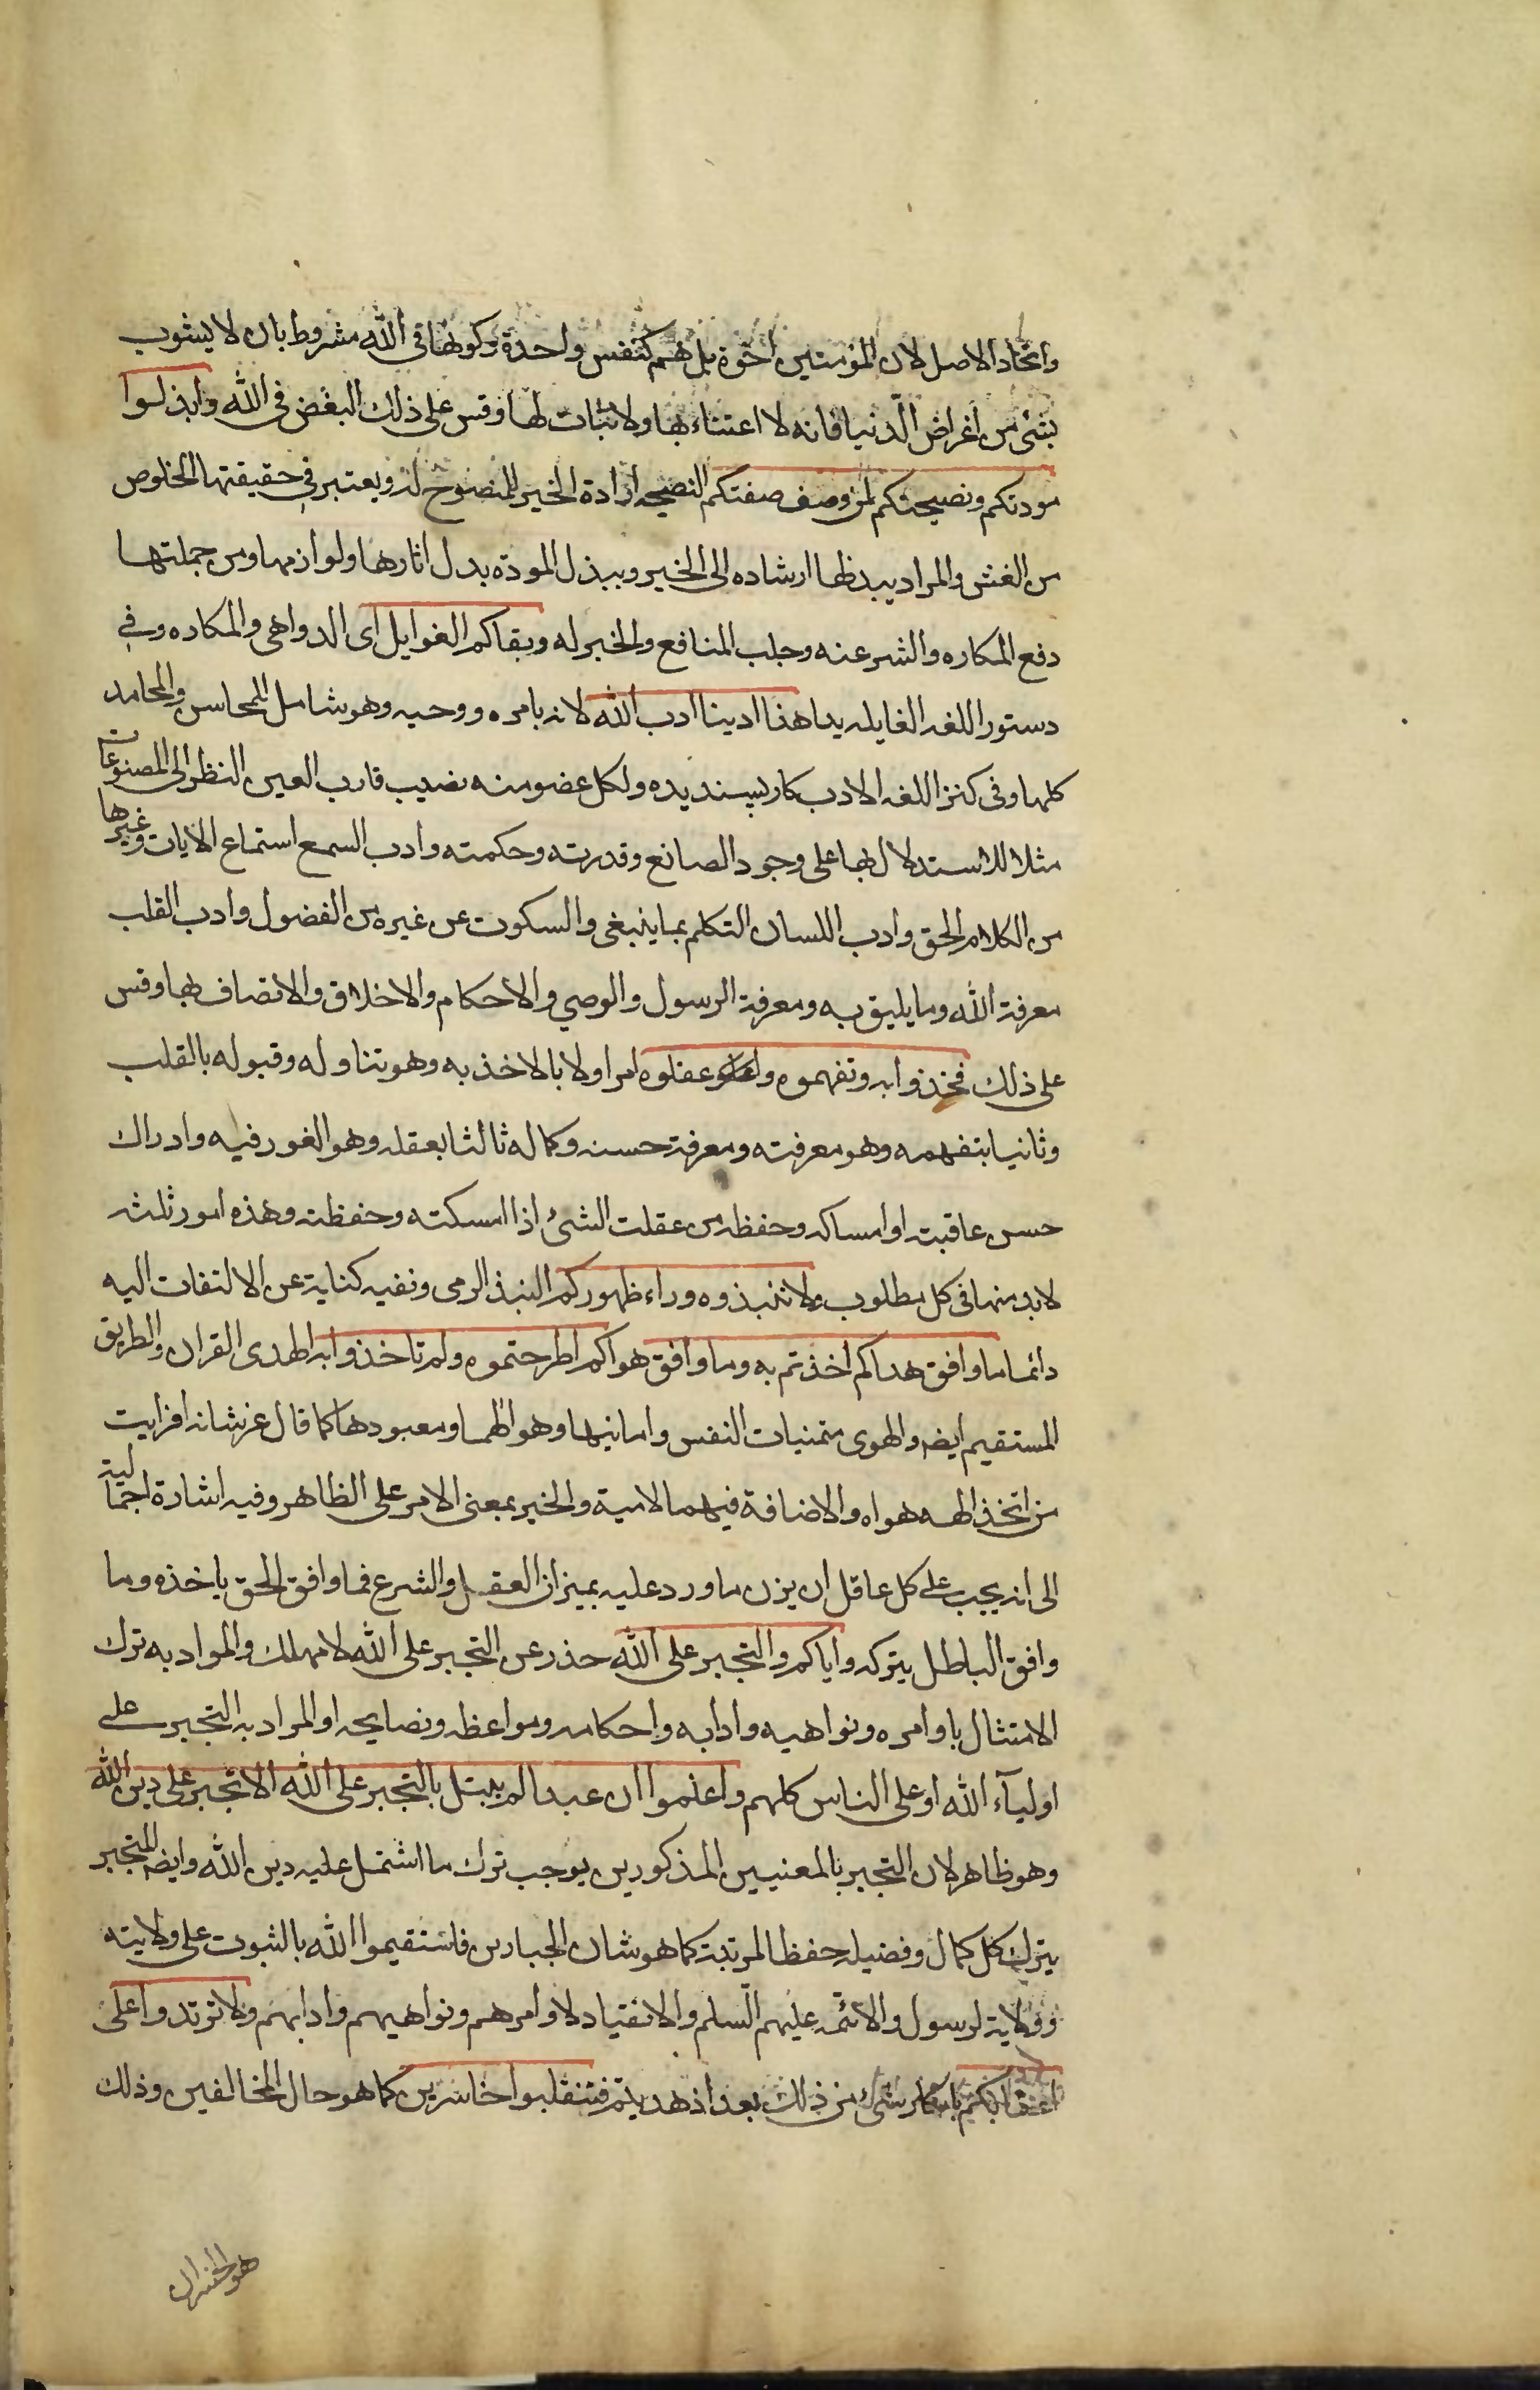 واتحاد الاصل لان المؤمنين اخوة بل هم كنفس واحدة وكونها في الله مشروط بان لا يشوب
بشئ من اغراض الدنيا فانه لا اعتناء بها ولا ثبات لها وقس على ذلك البغض في الله وابذلوا
مودتكم ونصيحتكم لمن وصف صفتكم النصيحه ارادة الخير للمنصوح له ويعتبر في حقيقتها الخلوص
من الغش والمراد ببذلها ارشاده الى الخير وببذل المودة بدل اثارها ولوازمها ومن جملتها
دفع المكاره والشر عنه وجلب المنافع والخير له وبقاكم الغوايل اى الدواهى والمكاره وفي
دستور اللغه الغايله بدا هذا ادبنا ادب الله لانه بامره ووحيه وهو شامل للمحاسن والمحامد
كلها وفى كنز اللغه الادب كار پسنديده ولكل عضو منه نصيب فادب العين النظر الى المصنوعات
مثلا للاستدلال بها على وجود الصانع وقدرته وحكمته وادب السمع استماع الايات وغيرها
من الكلام الحق وادب اللسان التكلم بما ينبغى والسكوت عن غيره من الفضول وادب القلب
معرفة الله وما يليق به ومعرفة الرسول والوصي والاحكام والاخلاق والاتصاف بها وقس
على ذلك فخذوا به وتفهموه واعقلوه امر اولا بالاخذ به وهو تناوله وقبوله بالقلب
وثانيا بتفهمه وهو معرفته ومعرفة حسنه وكماله ثالثا بعقله وهو الغور فيه وادراك
حسن عاقبته او امساكه وحفظه من عقلت الشئ اذا امسكته وحفظته وهذه امور ثلثه
لابد منها في كل مطلوب ولا تنبذوه وراء ظهوركم النبذ الرمى ونفيه كناية عن الالتفات اليه
دائما ما وافق هداكم اخذتم به وما وافق هواكم اطرحتموه ولم تاخذوا به الهدى القران والطريق
المستقيم ايضه والهوى متمنيات النفس وامانيها وهو الهها ومعبودها كما قال عز شانه افرايت
من اتخذ الهه هواه والاضافة فيهما لامية والخبر بمعنى الامر على الظاهر وفيه اشارة اجمالية
الى انه يجب على كل عاقل ان يزن ما ورد عليه بميزان العقل والشرع فما وافق الحق ياخذه وما
وافق الباطل يتركه واياكم والتجبر على الله حذر عن التجبر على الله لانه مهلك والمراد به ترك
الامتثال باوامره ونواهيه وادابه واحكامه ومواعظه ونصايحه او المراد به التجبر على
اولياء الله او على الناس كلهم واعلموا ان عبدا لم يبتل بالتجبر على الله الا تجبر على دين الله
وهو ظاهر لان التجبر بالمعنيين المذكورين يوجب ترك ما اشتمل عليه دين الله وايضه المتجبر
يترك كل كمال وفضيلة حفظا لمرتبة كما هو شان الجبارين فاستقيموا الله بالثبوت على ولايته
وولاية لرسول والائمه عليهم السلم والانقياد لاوامرهم ونواهيهم وادابهم ولا ترتدوا على
اعقابكم بانكار شئ من ذلك بعد اذ هديتم فتنقلبوا خاسرين كما هو حال المخالفين وذلك